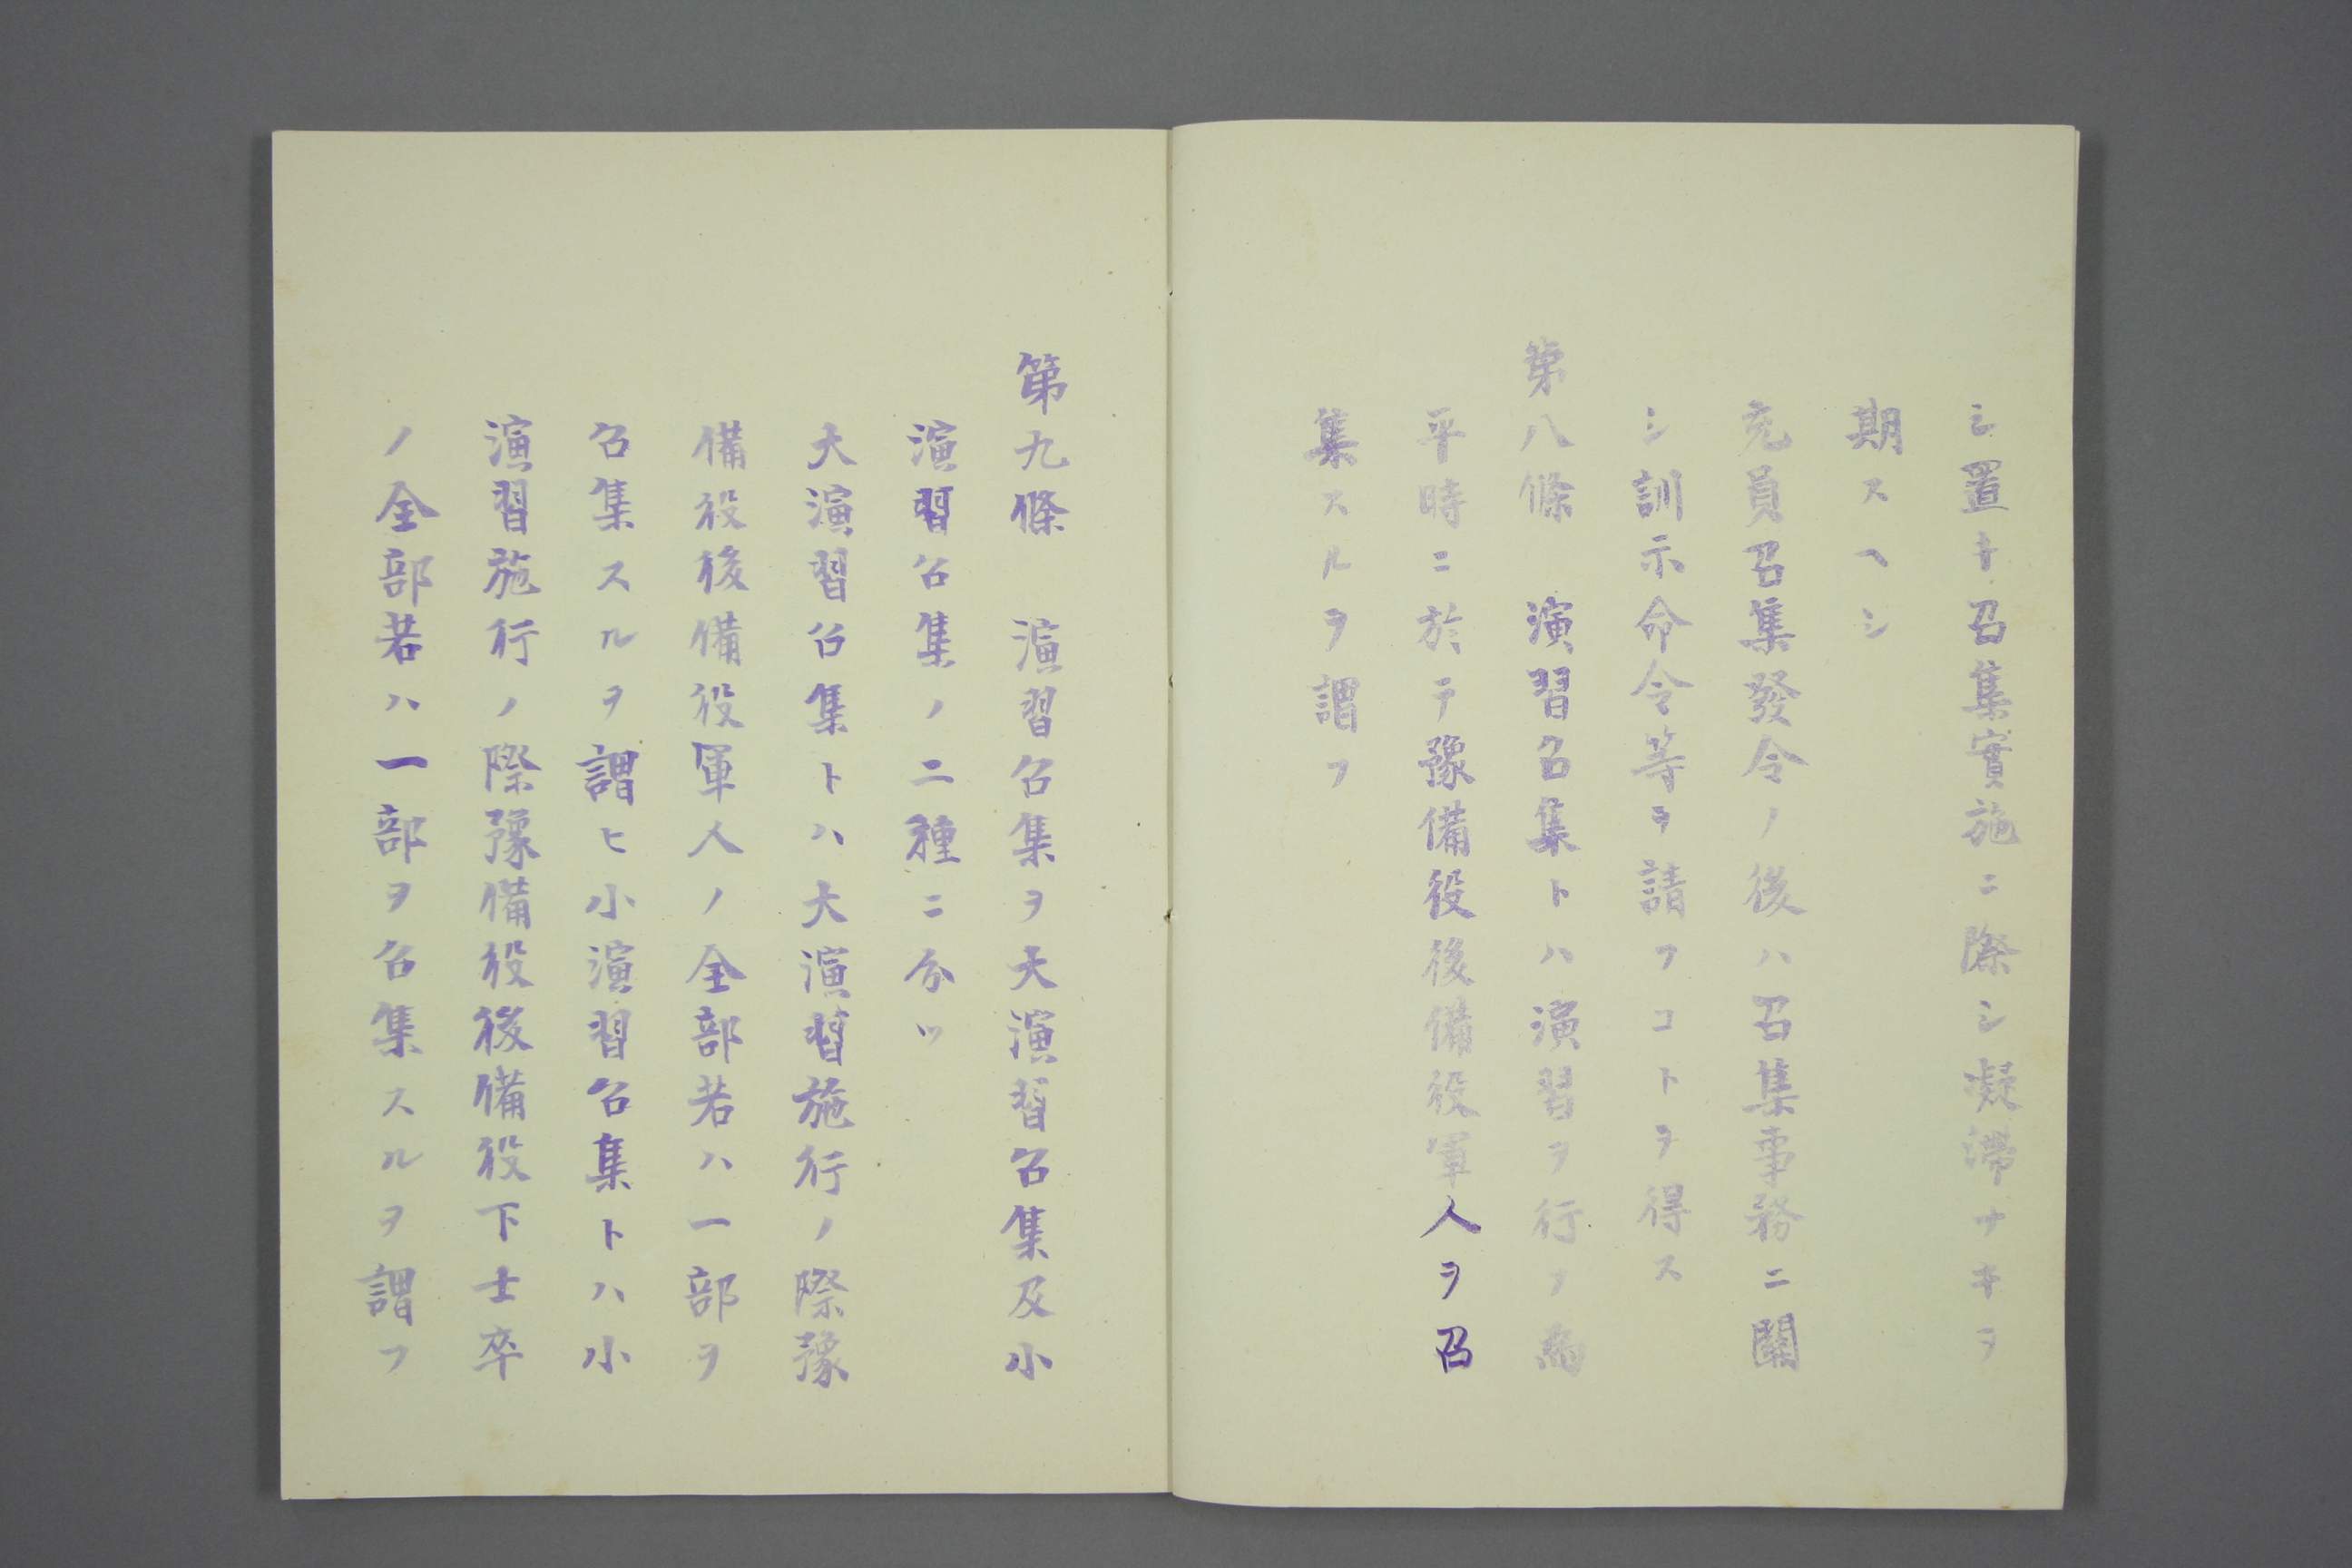 シ置キ召集實施ニ際シ凝滯ナキヲ
期スヘシ
充員召集發令ノ後ハ召集事務ニ關
シ訓示命令等ヲ請フコトヲ得ス
第八條　演習召集トハ演習ヲ行フ爲
平時ニ於テ豫備役後備役軍人ヲ召
集スルヲ謂フ
第九條　演習召集ヲ大演習召集及小
演習召集ノ二種ニ分ツ
大演習召集トハ大演習施行ノ際豫
備役後備役軍人ノ全部若ハ一部ヲ
召集スルヲ謂ヒ小演習召集トハ小
演習施行ノ際豫備役後備役下士卒
ノ全部若ハ一部ヲ召集スルヲ謂フ